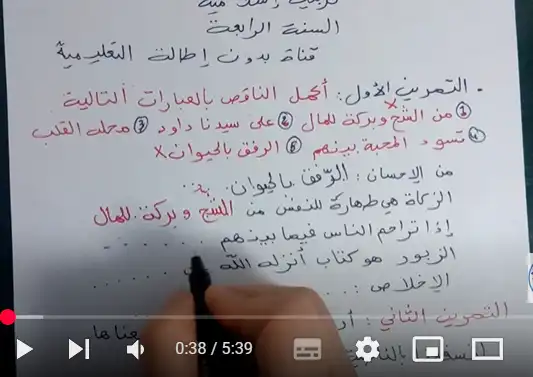 السنة الرابعة
قناة بدون إطالة التعليمية
. التمرين الأول : أكمل الناقص بالعبارات التالية
① من الشح وبركة للمال ② على سيدنا داود ③ محله القلب
④ تسود المحبة بينهم ⑤ الرفق بالحيوان x
من الإحسان : الرّفق بالحيوان.
الزكاة هي طهارة للنفس من الشح وبركة للمال
إذا تراحم الناس فيما بينهم . . . . . .
الزبور هو كتاب أنزله الله
الإخلاص : . . . .
التمرين الثاني :
0:38 / 5:39